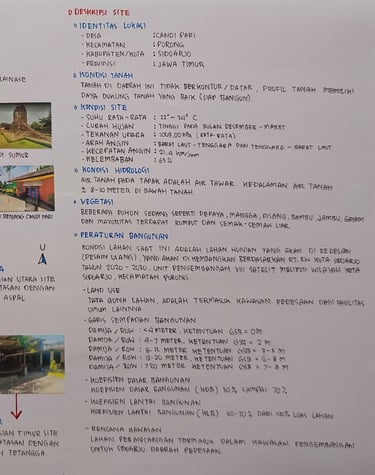 DESKRIPSI SITE
IDENTITAS LOKASI
- DESA : CANDI PARI
- KECAMATAN : PORONG
- KABUPATEN/KOTA : SIDOARJO
- PROVINSI : JAWA TIMUR
KONDISI TANAH
TANAH DI DAERAH INI TIDAK BERKONTUR/DATAR, PROFIL TANAH MEMILIKI
DAYA DUKUNG TANAH YANG BAIK (SIAP BANGUN)
KONDISI SITE
- SUHU RATA-RATA :
- CURAH HUJAN : TINGGI PADA BULAN DESEMBER - MARET
- TEKANAN UDARA : (RATA-RATA)
- ARAH ANGIN : BARAT LAUT - TENGGARA DAN TENGGARA - BARAT LAUT
- KECEPATAN ANGIN : 21.4 KM/JAM
- KELEMBABAN : 65%
KONDISI HIDROLOGI
AIR TANAH PADA TAPAK ADALAH AIR TAWAR. KEDALAMAN AIR TANAH
± 8-10 METER DI BAWAH TANAH
VEGETASI
BEBERAPA POHON SEDANG SEPERTI PEPAYA, MANGGA, PISANG, JAMBU,
DAN MAYORITAS TERDAPAT RUMPUT DAN SEMAK-SEMAK LIAR.
PERATURAN BANGUNAN
KONDISI LAHAN SAAT INI ADALAH LAHAN HUNIAN YANG AKAN DI RE DESAIN
(DESAIN ULANG), YANG AKAN DIKEMBANGKAN BERDASARKAN SIDOARJO
TAHUN 2020 - UNIT PENGEMBANGAN VIII SATELIT MELIPUTI WILAYAH KOTA
SIDOARJO, KECAMATAN PORONG.
- LAND USE
TATA GUNA LAHAN, ADALAH TERMASUK KAWASAN PEDESAAN DAN FASILITAS
UMUM LAINNYA
- GARIS SEMPADAN BANGUNAN
DAMIJA / ROW : <4 METER, KETENTUAN GSB = 0M
DAMIJA / ROW : 4-7 METER, KETENTUAN GSB = 2 M
DAMIJA / ROW : 8-12 METER KETENTUAN GSB =
DAMIJA / ROW : KETENTUAN GSB =
DAMIJA / ROW : >20 METER KETENTUAN GSB =
- KOEFISIEN DASAR BANGUNAN
KOEFISIEN DASAR BANGUNAN (KDB) 50% SAMPAI 70%
- KOEFISIEN LANTAI BANGUNAN
KOEFISIEN LANTAI BANGUNAN (KLB) DARI 100% LUAS LAHAN
- RENCANA KAWASAN
LAHAN PERANCANGAN TERMASUK DALAM KAWASAN PENGEMBANGAN
UNTUK SIDOARJO DAERAH PEDESAAN.
RAINASE
DI SUMUR
CANDI PARI
U
A
IAN UTARA SITE
TASAN DENGAN
ASPAL
IAN TIMUR SITE
ATASAN DENGAN
TETANGGA.